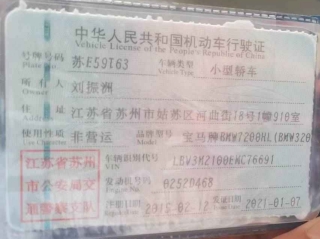 中华人民共和国机动车行驶证
Vehicle License of the People's Republic of China
号牌号码 苏E59T63 车辆类型 小型轿车
Plate No. Vehicle Type
所有人 刘振洲
Owner
住址 江苏省苏州市姑苏区河曲街18号1幢910室
使用性质 非营运 品牌型号 宝马牌BMW7200HL(BMW320
江苏省苏州 车辆识别代号
VIN
市公安局交 发动机号码 0252D468
通警察支队 注册日期 2015-02-12 2021-01-07